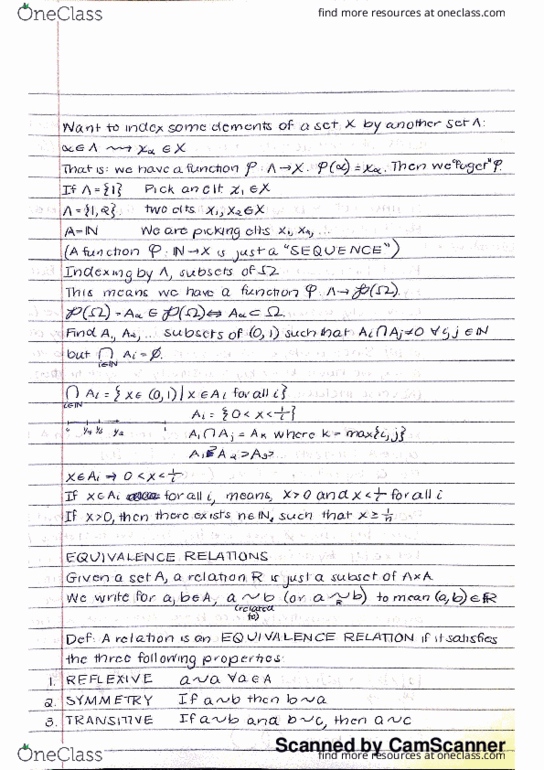 OneClass
find more resources at oneclass.com
Want to index some elements of a set X by another set Λ:
α∈Λ ⟿ xα ∈ X
That is: we have a function φ: Λ→X. φ(α) = xα. Then we "forget" φ.
If Λ={1} Pick an elt x₁∈X
Λ={1,2} two elts x₁,x₂∈X
Λ=ℕ We are picking elts x₁, x₂, ...
(A function φ: ℕ→X is just a "SEQUENCE")
Indexing by Λ, subsets of Ω
This means we have a function φ: Λ→℘(Ω).
℘(Ω) = Aα ∈ ℘(Ω) ⟺ Aα ⊂ Ω
Find A₁, A₂, ... subsets of (0,1) such that Ai∩Aj≠0 ∀i,j∈ℕ
but ⋂ Ai = ∅.
i∈ℕ
⋂ Ai = {x∈(0,1) | x∈Ai for all i}
i∈ℕ
Ai = {0<x<1/i}
0 1/4 1/3 1/2
Ai∩Aj = Ak where k = max{i,j}
A₁⊇A₂⊃A₃⊃...
x∈Ai → 0<x<1/i
If x∈Ai for all i, means, x>0 and x<1/i for all i
If x>0, then there exists n∈ℕ, such that x≥1/n
EQUIVALENCE RELATIONS
Given a set A, a relation R is just a subset of A×A
We write for a,b∈A, a~b (or a ~ b) to mean (a,b)∈R
(related to) R
Def: A relation is an EQUIVALENCE RELATION if it satisfies
the three following properties:
1. REFLEXIVE a~a ∀a∈A
2. SYMMETRY If a~b then b~a
3. TRANSITIVE If a~b and b~c, then a~c
Scanned by CamScanner
OneClass
find more resources at oneclass.com